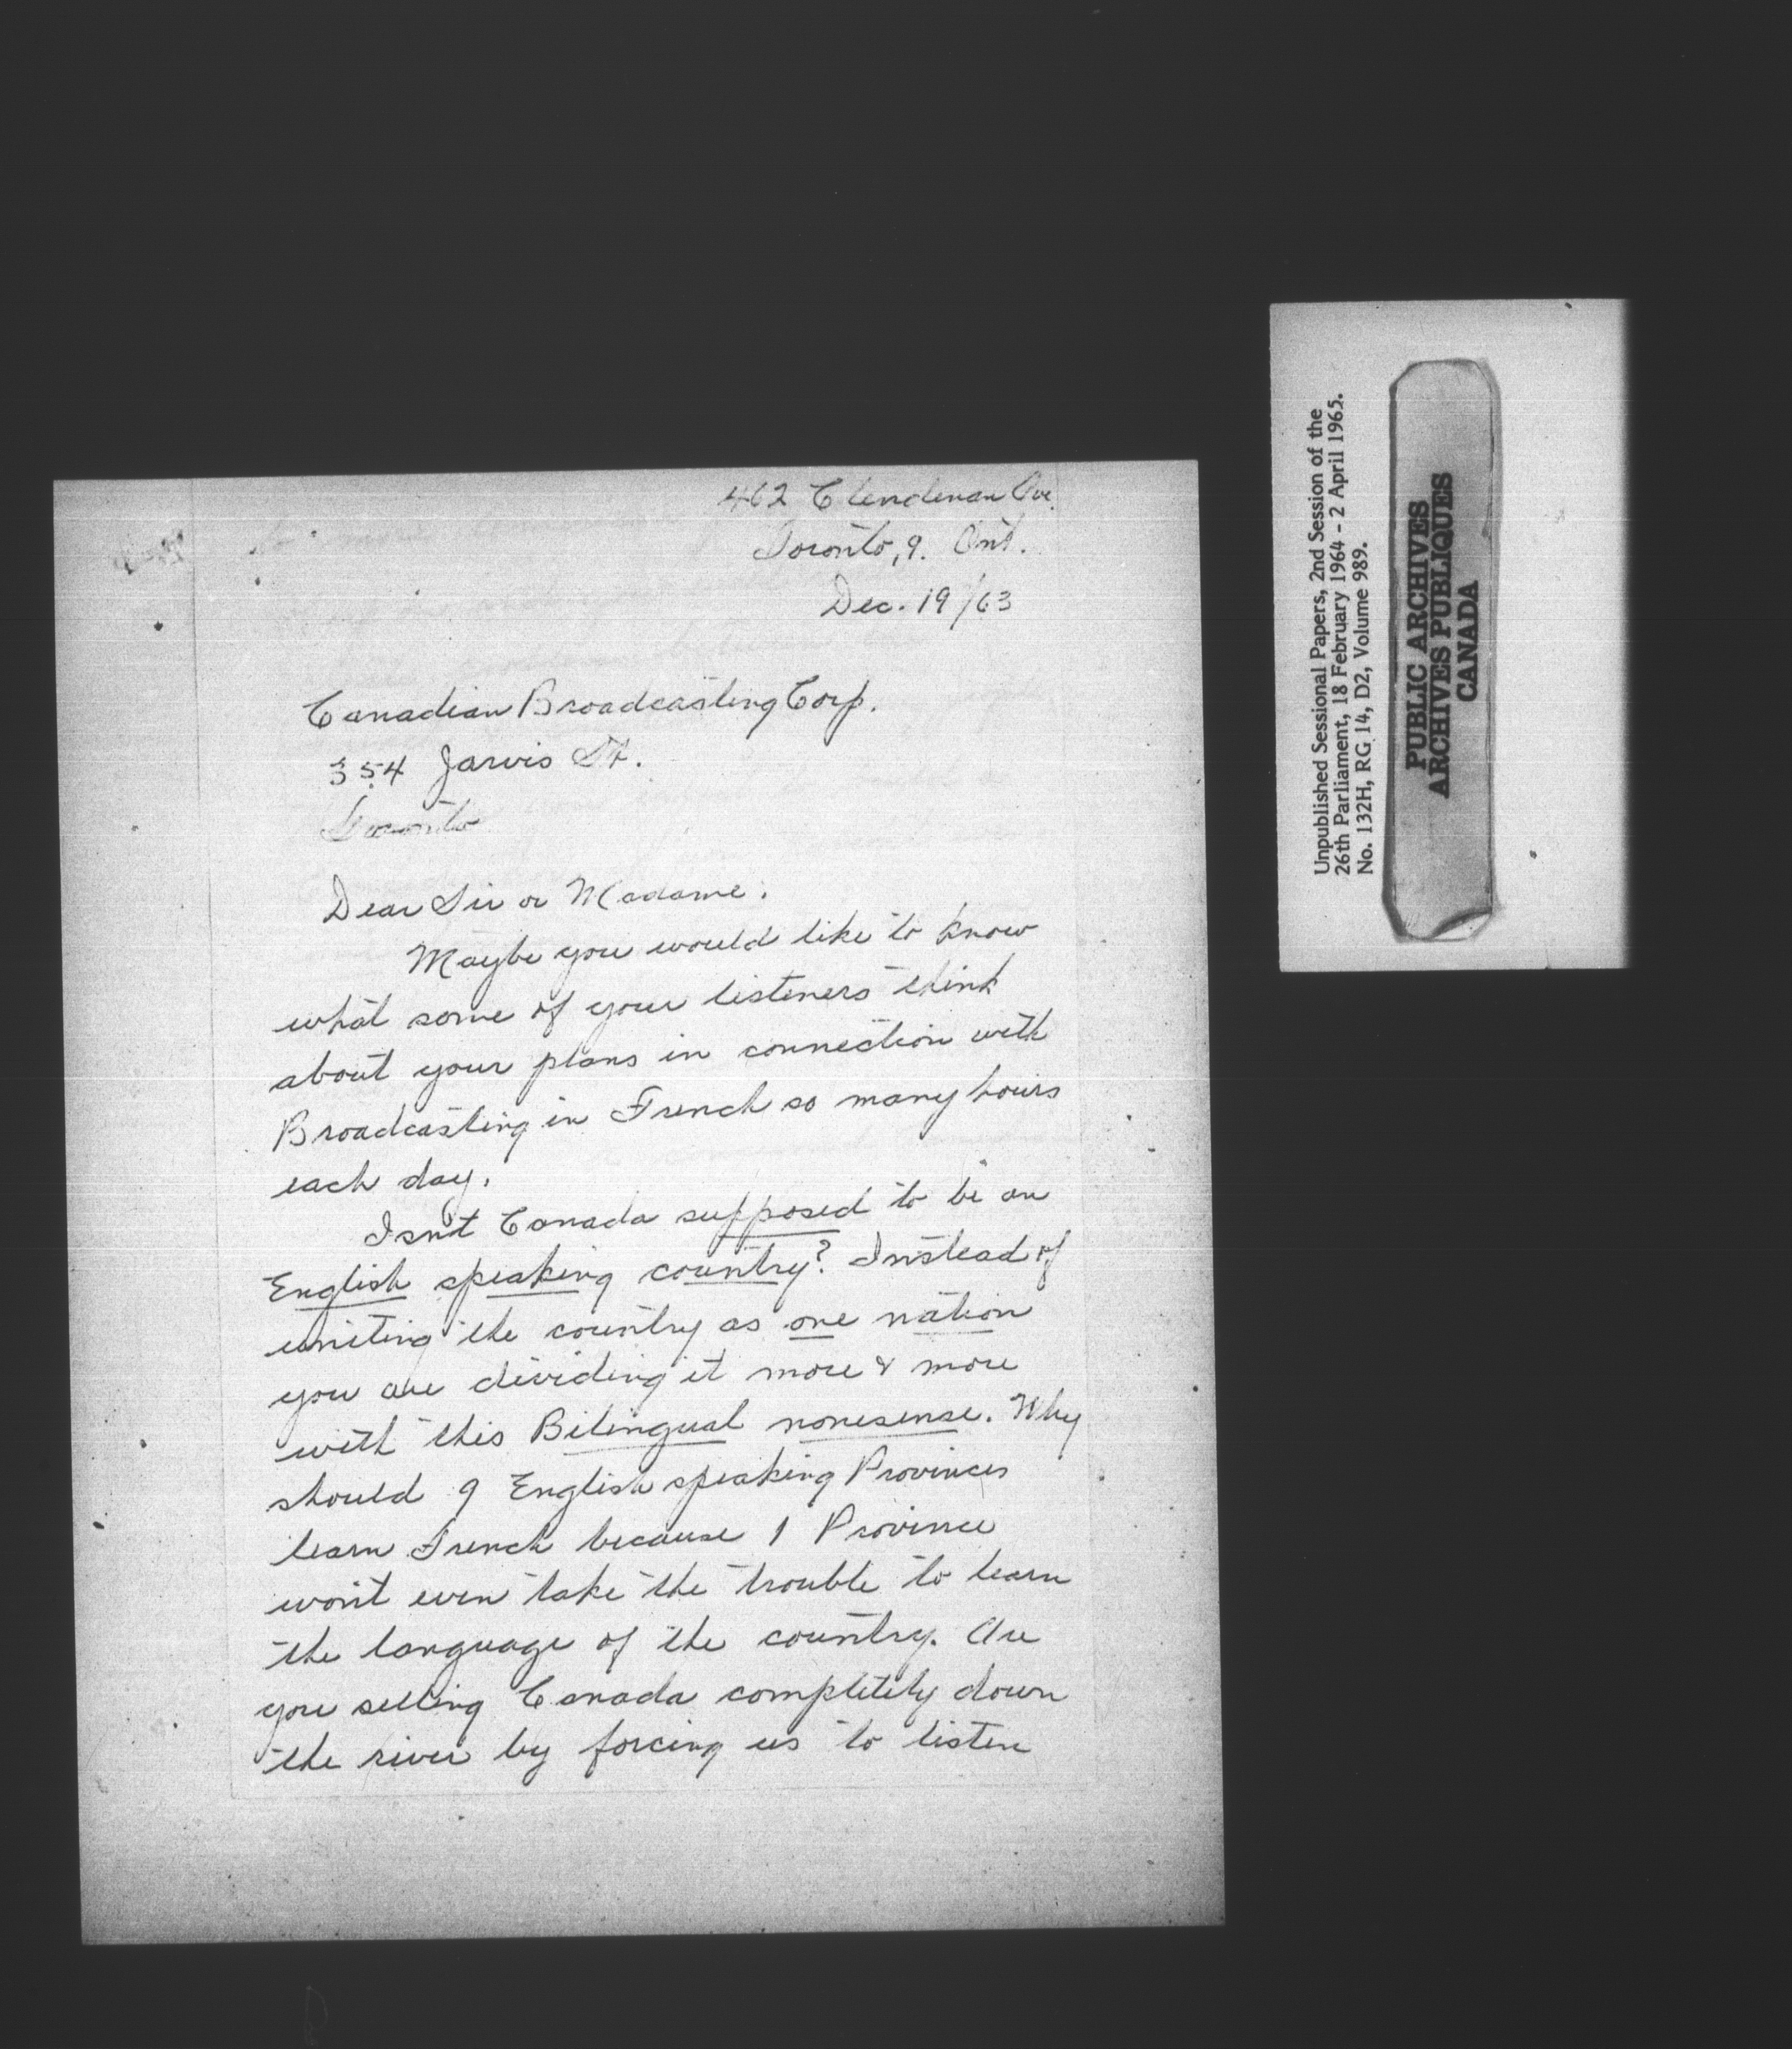 462 Clendenan Ave.
Toronto, 9. Ont.
Dec. 19/63
Canadian Broadcasting Corp.
354 Jarvis St.
Toronto
Dear Sir or Madame:
Maybe you would like to know
what some of your listeners think
about your plans in connection with
Broadcasting in French so many hours
each day.
Isn't Canada supposed to be an
English speaking country? Instead of
uniting the country as one nation
you are dividing it more & more
with this Bilingual nonesense. Why
should 9 English speaking Provinces
learn French because 1 Province
won't even take the trouble to learn
the language of the country. Are
you selling Canada completely down
the river by forcing us to listen
Unpublished Sessional Papers, 2nd Session of the
26th Parliament, 18 February 1964 - 2 April 1965.
No. 132H, RG 14, D2, Volume 989.
PUBLIC ARCHIVES
ARCHIVES PUBLIQUES
CANADA